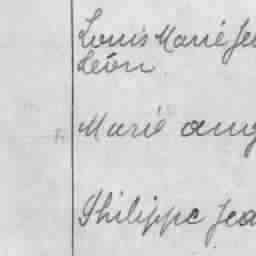 Louis Marie Je
Léon
Marie Ang
Philippe Jea